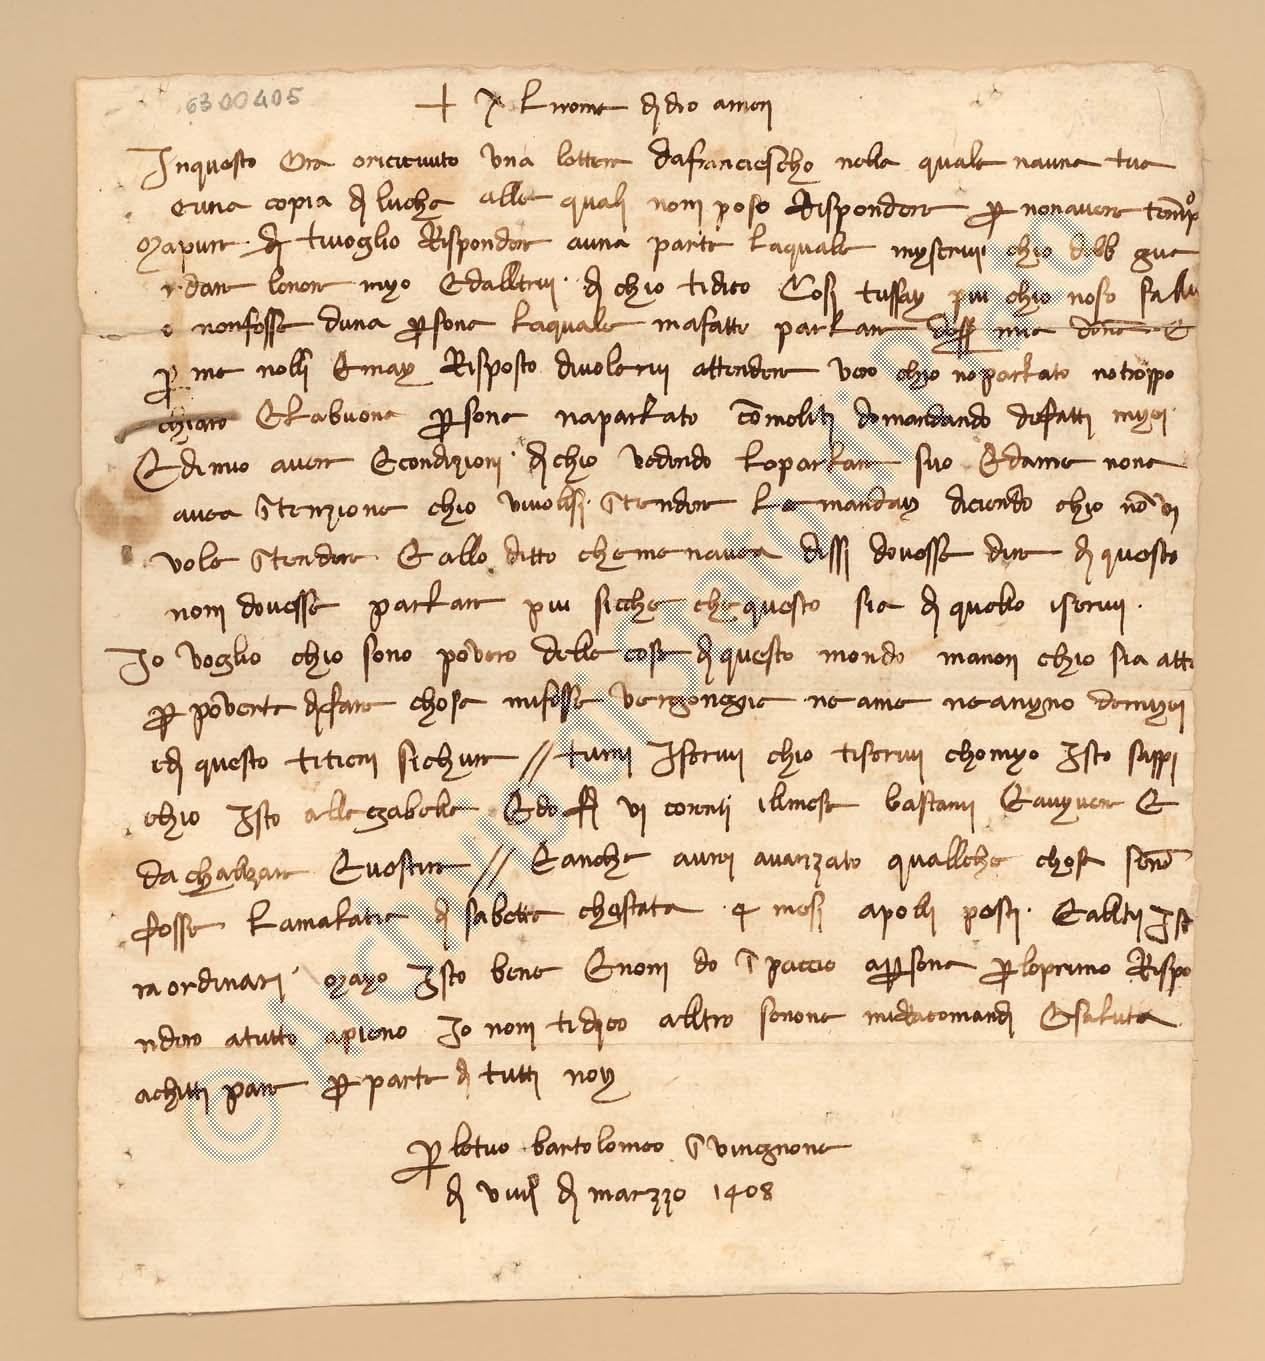 6300405
+ Al nome di dio amen
In questo Ora oricievuto una lettera dafranciescho nella quale navea tua
e una copia di lucha alle quali non poso Rispondere per nonavere tempo
Mapure di tivoglio Rispondere auna parte laquale myscrivi chio debb gua
rdare lonore myo Edalltrui di chio tidico Cosi tussay piu chio noso
e nonfosse duna persona laquale mafatto parlare mia E
per me nolli Emay Risposto divolervi attendere vero chio noparlato notroppo
chiaro Elabuona persona naparlato comolti domandando defatti myei
Edimio avere Econdizioni di chio vedendo loparlare suo Edame none
avea Intenzione chio vivolessi Intendere lemanday diciendo chio non vi
vole Intendere Eallo ditto chemenavea dissi dovesse dire di questo
non dovesse parlare piu sicche chequesto sia di quello iscrivi
Io voglio chio sono povero delle cose di questo mondo manon chio sia atto
per poverta difare chosa mifosse vergongnia neame neanyuno demyei
edi questo titieni sichura // tumi Iscrivi chio tiscrivi chomyo Isto sappi
chio Isto alle ghabelle Edo vi corenti ilmese bastami Eauyvere E
da chalzare Evestire // Eanche avrei avanzato qualleche chosa seno
fosse lamalatia di sabetta chestata 4 mesi apolli pesti Ealltri Ist
raordinari Mayo Isto bene Enon do Impaccio apersona perloprimo Rispo
ndero atutto apieno Io non tidico alltro senone mirachomandi Esaluta
achitti pare per parte di tutti noy
per lotuo bartolomeo Invingnone
di viiii di marzzo 1408